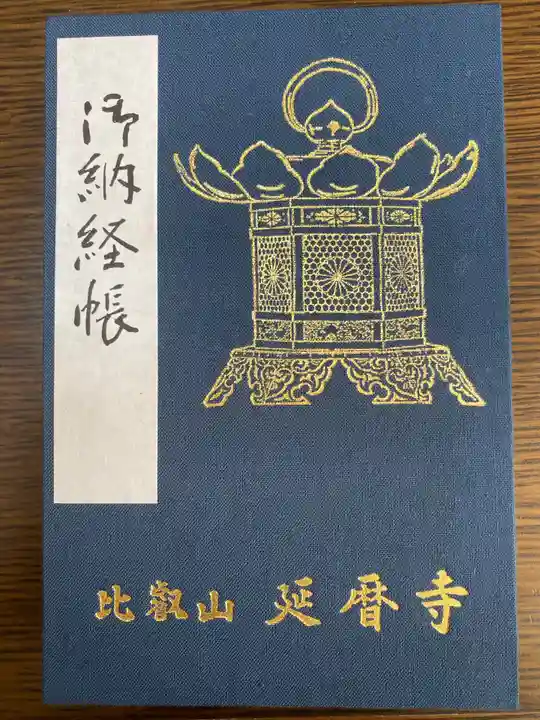 御納経帳
比叡山 延暦寺